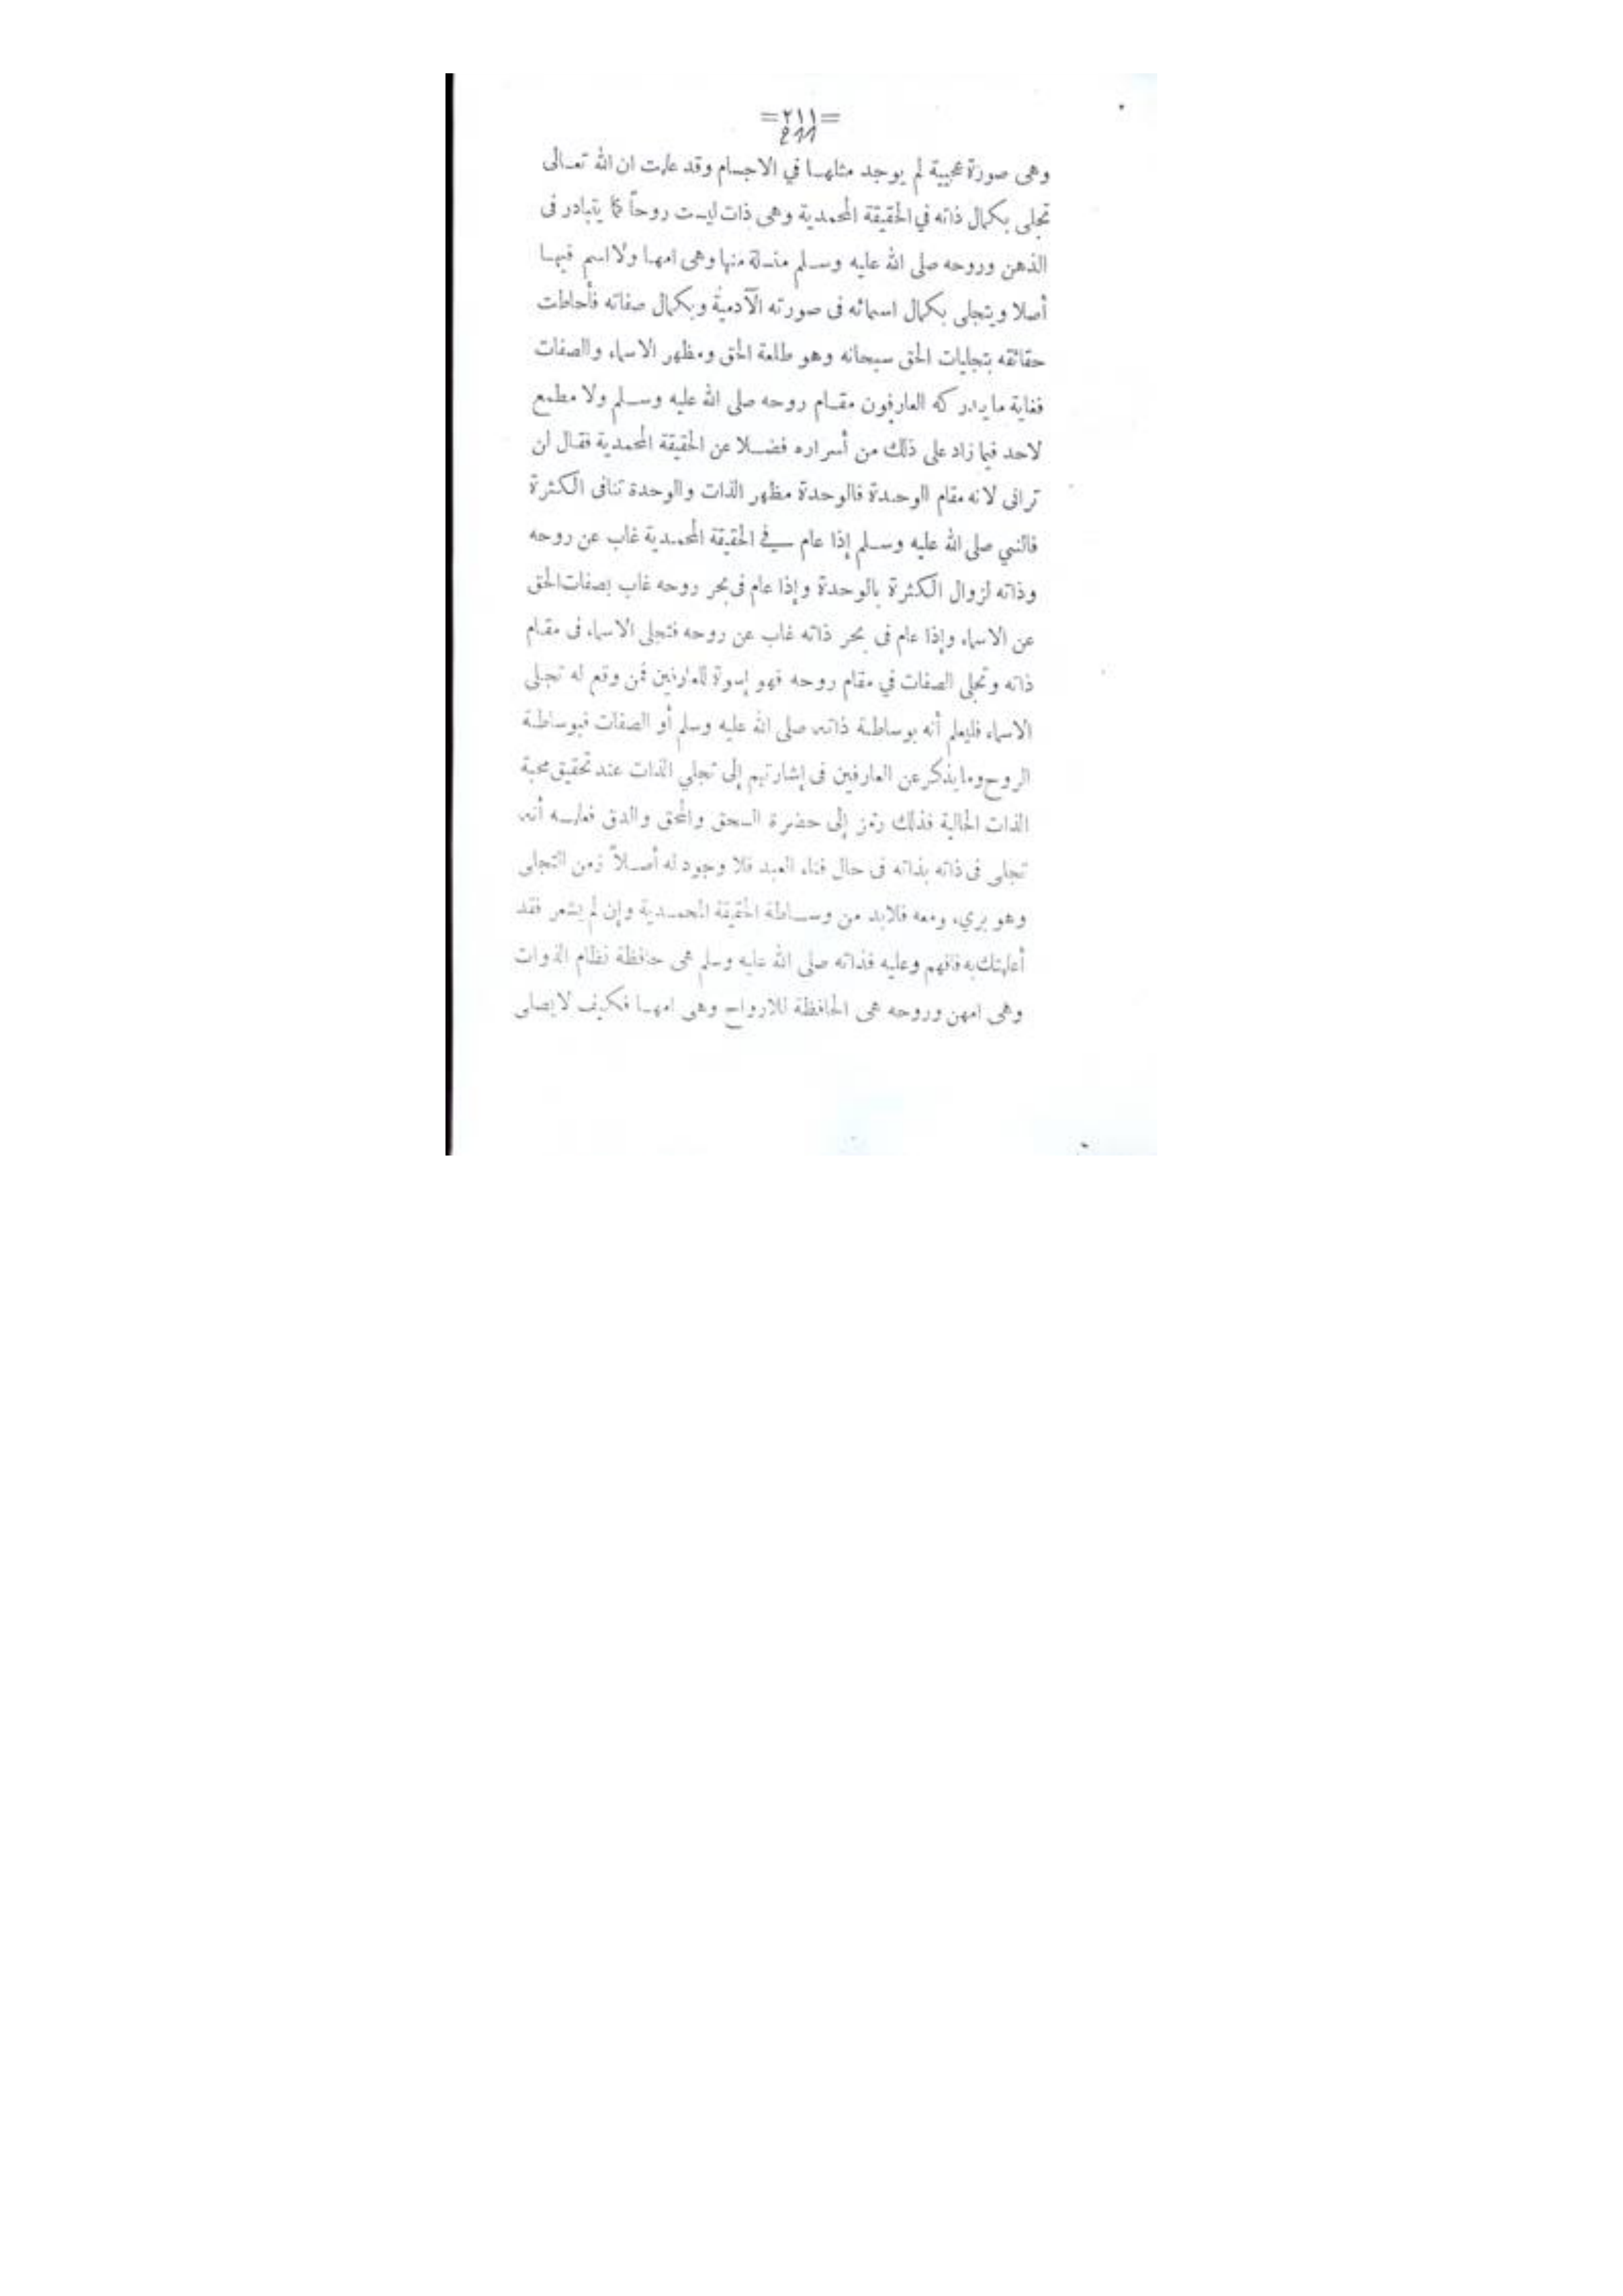 =٢١١=
211
وهى صورة عجيبة لم يوجد مثلها في الاجسام وقد علمت ان الله تعالى
تجلى بكمال ذاته في الحقيقة المحمدية وهى ذات ليست روحاً كما يتبادر فى
الذهن وروحه صلى الله عليه وسلم منسلة منها وهى امها ولا اسم فيها
أصلا ويتجلى بكمال اسمائه فى صورته الآدمية وبكمال صفاته فأحاطت
حقائقه بتجليات الحق سبحانه وهو طلعة الحق ومظهر الاسماء والصفات
فغاية ما يدركه العارفون مقام روحه صلى الله عليه وسلم ولا مطمع
لاحد فيما زاد على ذلك من أسراره فضلا عن الحقيقة المحمدية فقال لن
ترانى لانه مقام الوحدة فالوحدة مظهر الذات والوحدة تنافى الكثرة
فالنبي صلى الله عليه وسلم إذا عام في الحقيقة المحمدية غاب عن روحه
وذاته لزوال الكثرة بالوحدة وإذا عام فى بحر روحه غاب بصفات الحق
عن الاسماء وإذا عام فى بحر ذاته غاب عن روحه فتجلى الاسماء فى مقام
ذاته وتجلى الصفات في مقام روحه فهو إسوة للعارفين فمن وقع له تجلى
الاسماء فليعلم أنه بوساطة ذاته صلى الله عليه وسلم أو الصفات فبوساطة
الروح وما يذكر عن العارفين فى إشارتهم إلى تجلي الذات عند تحقيق محبة
الذات الخالية فذلك رمز إلى حضرة السحق والمحق والدق فعليه أنه
تجلى فى ذاته بذاته فى حال فناء العبد فلا وجود له أصلاً زمن التجلى
وهو بريء ومعه فلابد من وساطة الحقيقة المحمدية وإن لم يشعر فقد
أعلمتك به فافهم وعليه فذاته صلى الله عليه وسلم هى حافظة نظام الذوات
وهى امهن وروحه هى الحافظة للارواح وهى امها فكيف لا يصلى